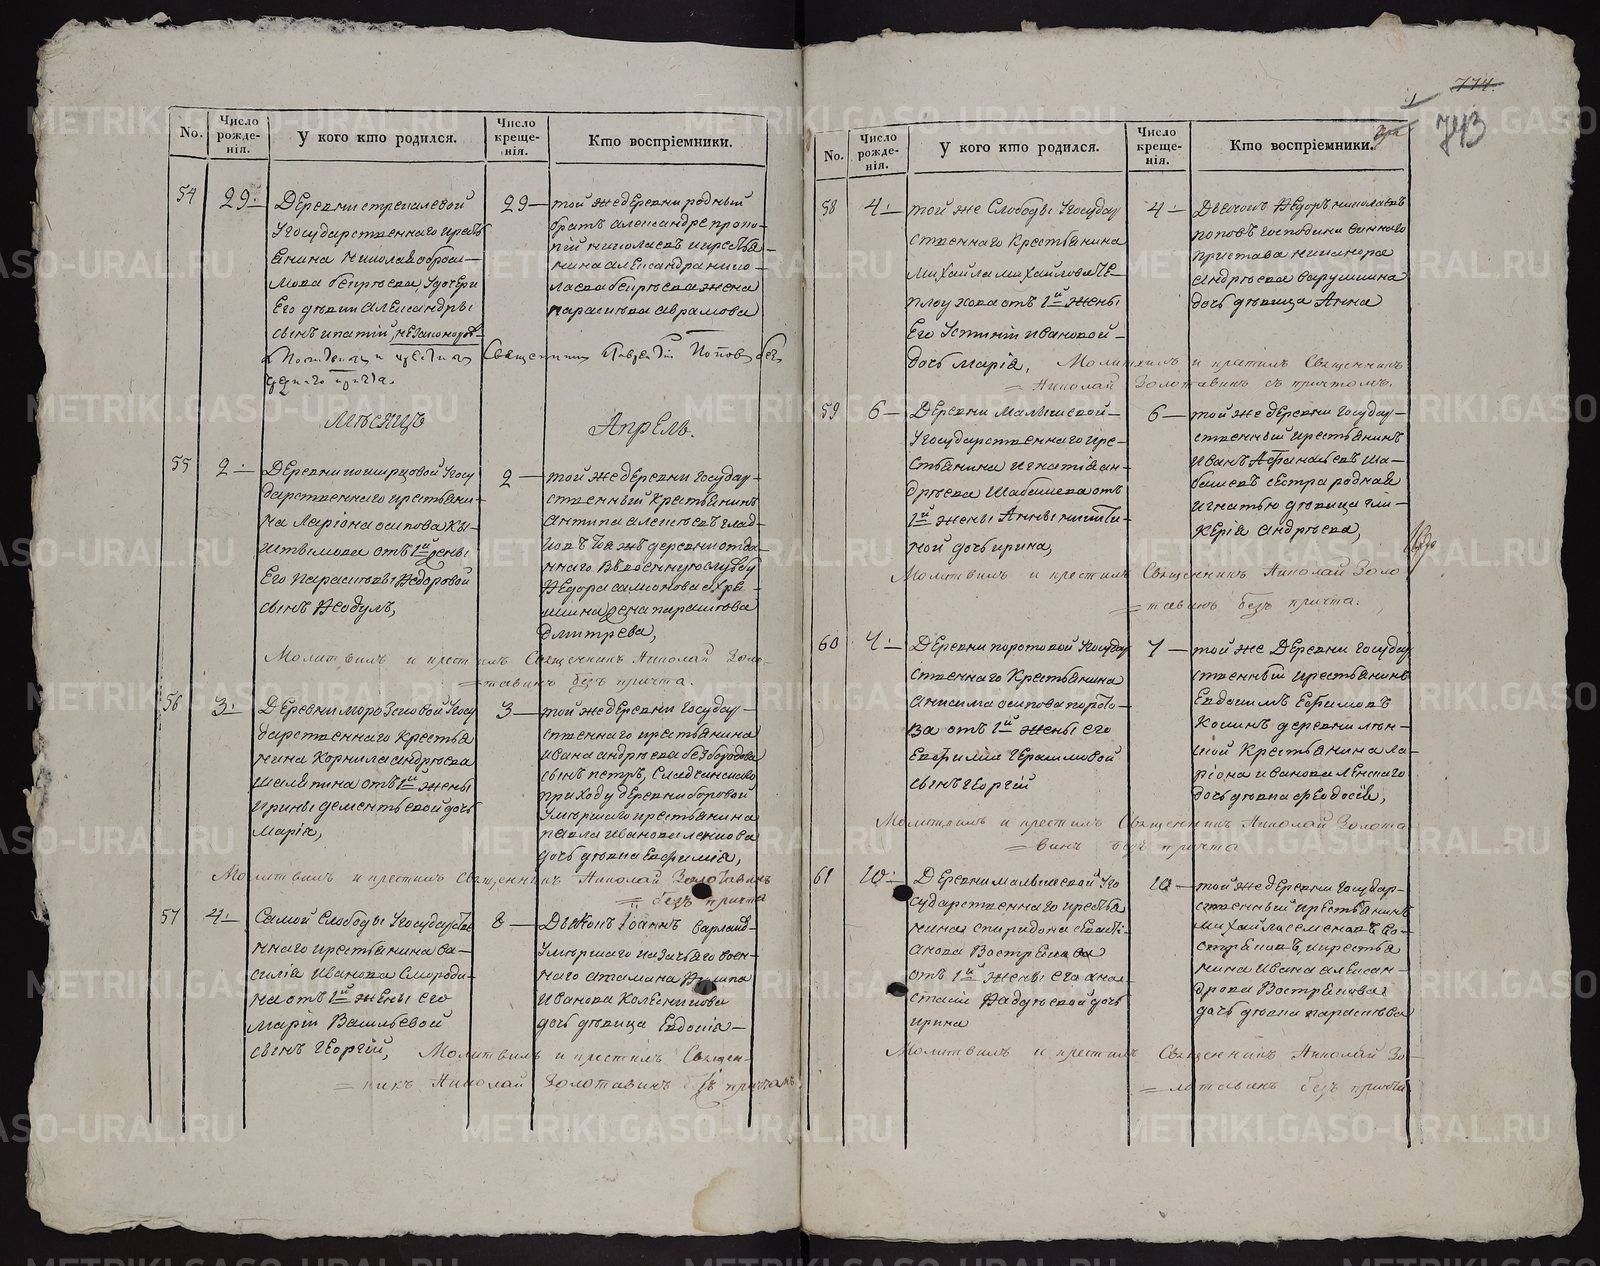 No.
Число рожде-нія.
У кого кто родился.
Число креще-нія.
Кто воспріемники.
54
29
Деревни стрекалевой
Угосударственнаго кресть
янина николая
Его девки Александры
сынъ ипатій, незаконорож
29
той же деревни родный
братъ александре проко-
пій николаевъ и кресть
янина александра нико-
лаева жена
параскева аврамова
Священникъ Поповъ безъ
Мѣсяцъ
Апрель.
55
2
Деревни Угосу
дарственнаго крестьяни-
на Ларіона осипова Кы-
штымова отъ 1й жены
Его Параскевы Федоровой
сынъ Феодулъ,
2
той же деревни государ-
ственный крестьянинъ
антипа алексеевъ глад-
ковъ тояжъ деревни отда-
ннаго въ военную службу
Федора самсонова
жена параскева
дмитрева,
Молитвилъ и крестилъ Священникъ Николай Золо-
=тавинъ безъ причта.
56
3
Деревни морозковой Угосу
дарственнаго крестья
нина Корнила андреева
шелягина отъ 1й жены
Ирины дементьевой дочь
марія,
3
той же деревни государ-
ственнаго крестьянина
ивана андреева безбородова
сынъ петръ,
приходу деревни боровой
Умершаго крестьянина
павла иванова
дочь девка Евфимія,
Молитвилъ и крестилъ Священникъ Николай Золотавинъ
= безъ причта
57
4
Самой Слободы Угосударстве
ннаго крестьянина ва-
силія иванова Смороди-
на отъ 1й жены его
маріи Васильевой
сынъ Георгій,
8
Дьяконъ Іоаннъ
Умершаго казачьяго воен-
наго атамана Филипа
иванова Колесникова
дочь девица Евдокія
Молитвилъ и крестилъ Священ-
=никъ Николай Золотавинъ безъ причта
774.
743
No.
Число рожде-нія.
У кого кто родился.
Число креще-нія.
Кто воспріемники.
58
4
той же Слободы Угосудар
ственнаго Крестьянина
михайла михайлова Че-
плоухова отъ 1й жены
Его Устиніи ивановой
дочь марія,
4
Дьячокъ Федоръ николаевъ
поповъ господина виннаго
пристава никанора
андреева варушкина
дочь девица Анна
Молитвилъ и крестилъ Священникъ
=Николай Золотавинъ съ причтомъ.
59
6
Деревни Малышевой
Угосударственнаго кре-
стьянина игнатія ан-
дреева Шабашева отъ
1й жены Анны никити-
ной дочь ирина,
6
той же деревни государ-
ственный крестьянинъ
иванъ Афанасьевъ ша-
башевъ сестра родная
игнатью девица гли-
керія андреева,
Молитвилъ и крестилъ Священникъ Николай Золо
=тавинъ безъ причта.
60
Деревни поротовой Угосудар
ственнаго Крестьянина
анисима осипова порото-
ва отъ 1й жены его
Евфиміи Герасимовой
сынъ Георгій
7
той же Деревни государ
ственный крестьянинъ
Евдокимъ Ефимовъ
Кокинъ деревни
Крестьянина ла-
ріона иванова
дочь девка феодосія,
Молитвилъ и крестилъ Священникъ Николай Золота
=винъ безъ причта
61
10
Деревни малышевой Уго
сударственнаго крестья
нина спиридона севасті-
анова Вострекова
отъ 1й жены его ана-
стасіи Фаддеевой дочь
ирина
10
той же деревни государ-
ственный крестьянинъ
михайла семеновъ во-
стрековъ, и крестья
нина ивана алексан-
дрова Вострекова
дочь девка параскева
Молитвилъ и крестилъ Священникъ Николай Зо-
=лотавинъ безъ причта
METRIKI.GASO-URAL.RU